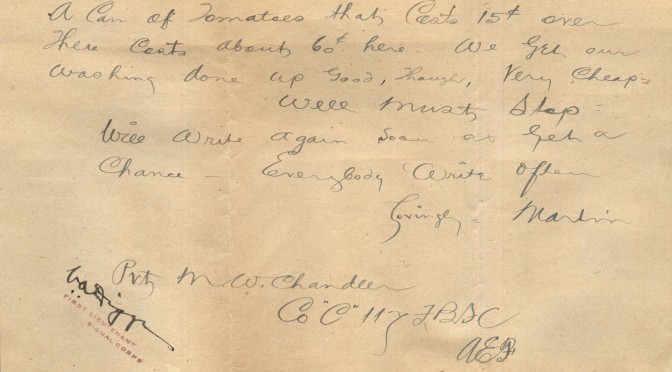 A Can of Tomatoes that Costs 15¢ over
There Costs about 60¢ here - We Get our
Washing done up Good, though, Very Cheap -
Well Must Stop =
Will Write again Soon as Get a
Chance - Everybody Write often
Lovingly = Martin
Pvt M.W. Chandler
Co "C" 117 F.B.S.C
AEF
FIRST LIEUTENANT
SIGNAL CORPS